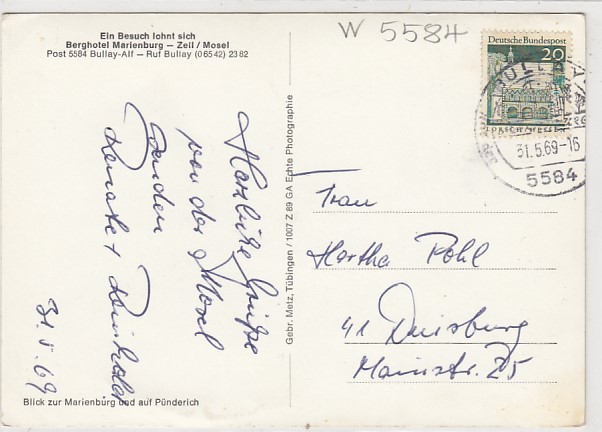 W 5584
Ein Besuch lohnt sich
Berghotel Marienburg – Zell / Mosel
Post 5584 Bullay-Alf – Ruf Bullay (06542) 2382
Deutsche Bundespost
20
LORSCH/HESSEN
BULLAY
31.5.69-16
5584
Herzliche Grüße
von der Mosel
senden
Renate + Reinhold
31.5.69
Gebr. Metz, Tübingen / 1007 Z 89 GA Echte Photographie
Frau
Hertha Pohl
41 Duisburg
Mainstr. 25
Blick zur Marienburg und auf Pünderich